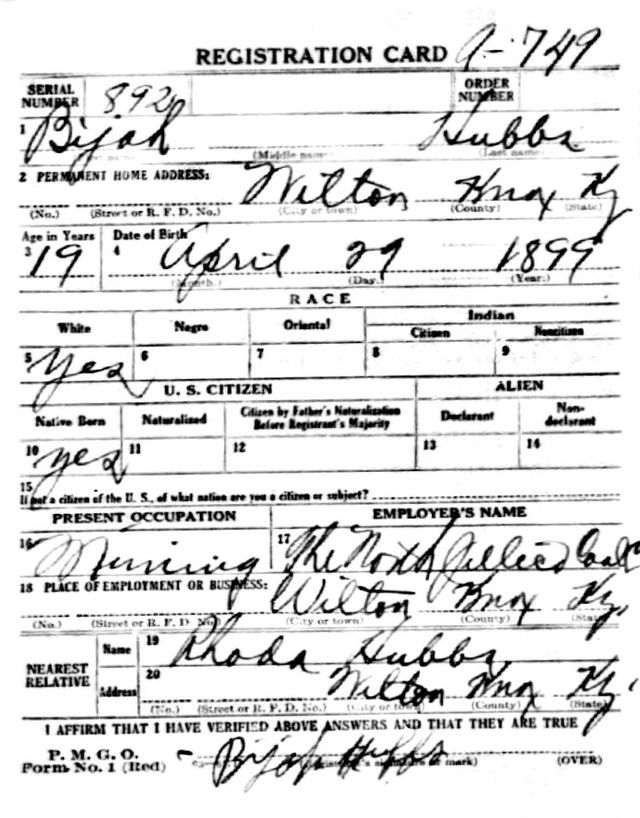 REGISTRATION CARD A-749
SERIAL NUMBER 892 ORDER NUMBER
1 Bijah Hubbs
(Middle name) (Last name)
2 PERMANENT HOME ADDRESS: Wilton Knox Ky
(No.) (Street or R. F. D. No.) (City or town) (County) (State)
Age in Years Date of Birth
3 19 4 April 29 1899
(Month.) (Day.) (Year.)
RACE
White Negro Oriental Indian
Citizen Noncitizen
5 Yes 6 7 8 9
U. S. CITIZEN ALIEN
Native Born Naturalized Citizen by Father's Naturalization Before Registrant's Majority Declarant Non-declarant
10 yes 11 12 13 14
15 If not a citizen of the U. S., of what nation are you a citizen or subject?
PRESENT OCCUPATION EMPLOYER'S NAME
16 Mining 17 The North Jellico Coal Co
18 PLACE OF EMPLOYMENT OR BUSINESS: Wilton Knox Ky.
(No.) (Street or R. F. D. No.) (City or town) (County) (State)
NEAREST RELATIVE Name 19 Rhoda Hubbs
Address 20 Wilton Knox Ky.
(No.) (Street or R. F. D. No.) (City or town) (County) (State)
I AFFIRM THAT I HAVE VERIFIED ABOVE ANSWERS AND THAT THEY ARE TRUE
P. M. G. O.
Form No. 1 (Red) Bijah Hubbs (OVER)
(Registrant's signature or mark)